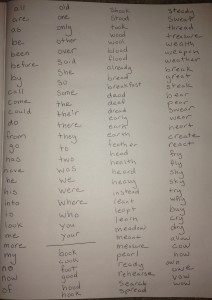 all
are
as
be
been
before
by
call
come
could
do
from
go
has
have
he
his
into
is
look
me
more
my
no
now
of
old
one
only
other
over
Said
She
So
Some
the
their
there
they
to
two
was
we
Were
Where
who
you
your
book
cook
foot
good
hood
hook
Shook
Stood
took
wood
wool
blood
flood
already
bread
breakfast
dead
deaf
early
earn
earth
feather
head
health
heard
heavy
instead
leant
leapt
learn
meadow
meant
measure
pearl
ready
rehearse
Search
spread
steady
sweat
thread
treasure
wealth
weapon
weather
break
great
steak
bear
pear
swear
wear
heart
create
react
fry
fly
shy
sky
try
why
buy
cry
dry
allow
cow
how
vow
wow